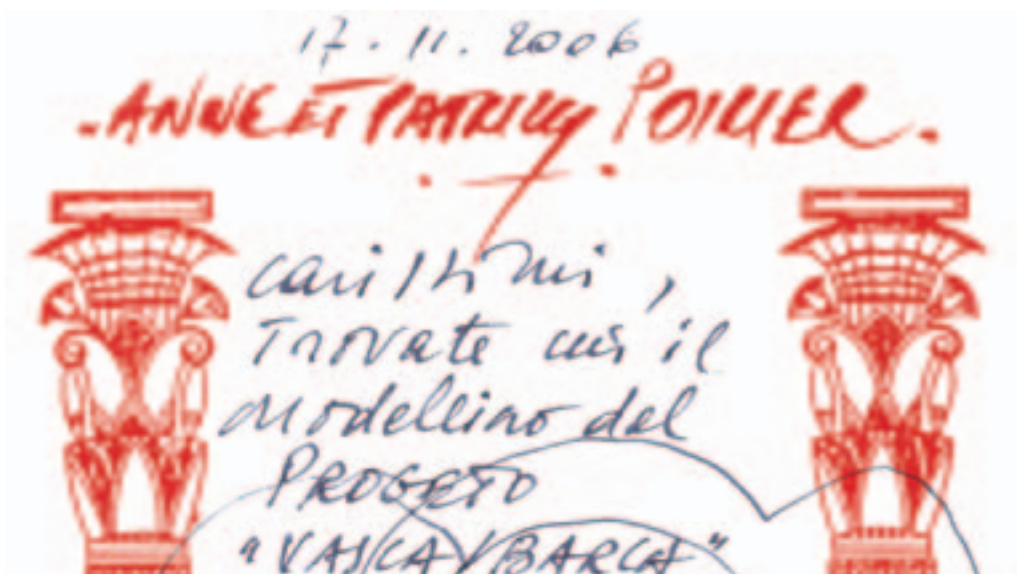 17.11.2006
.ANNE ET PATRICK POIRIER.
carissimi,
Trovate cui il
Modellino del
PROGETO
"VASCA/BARCA"